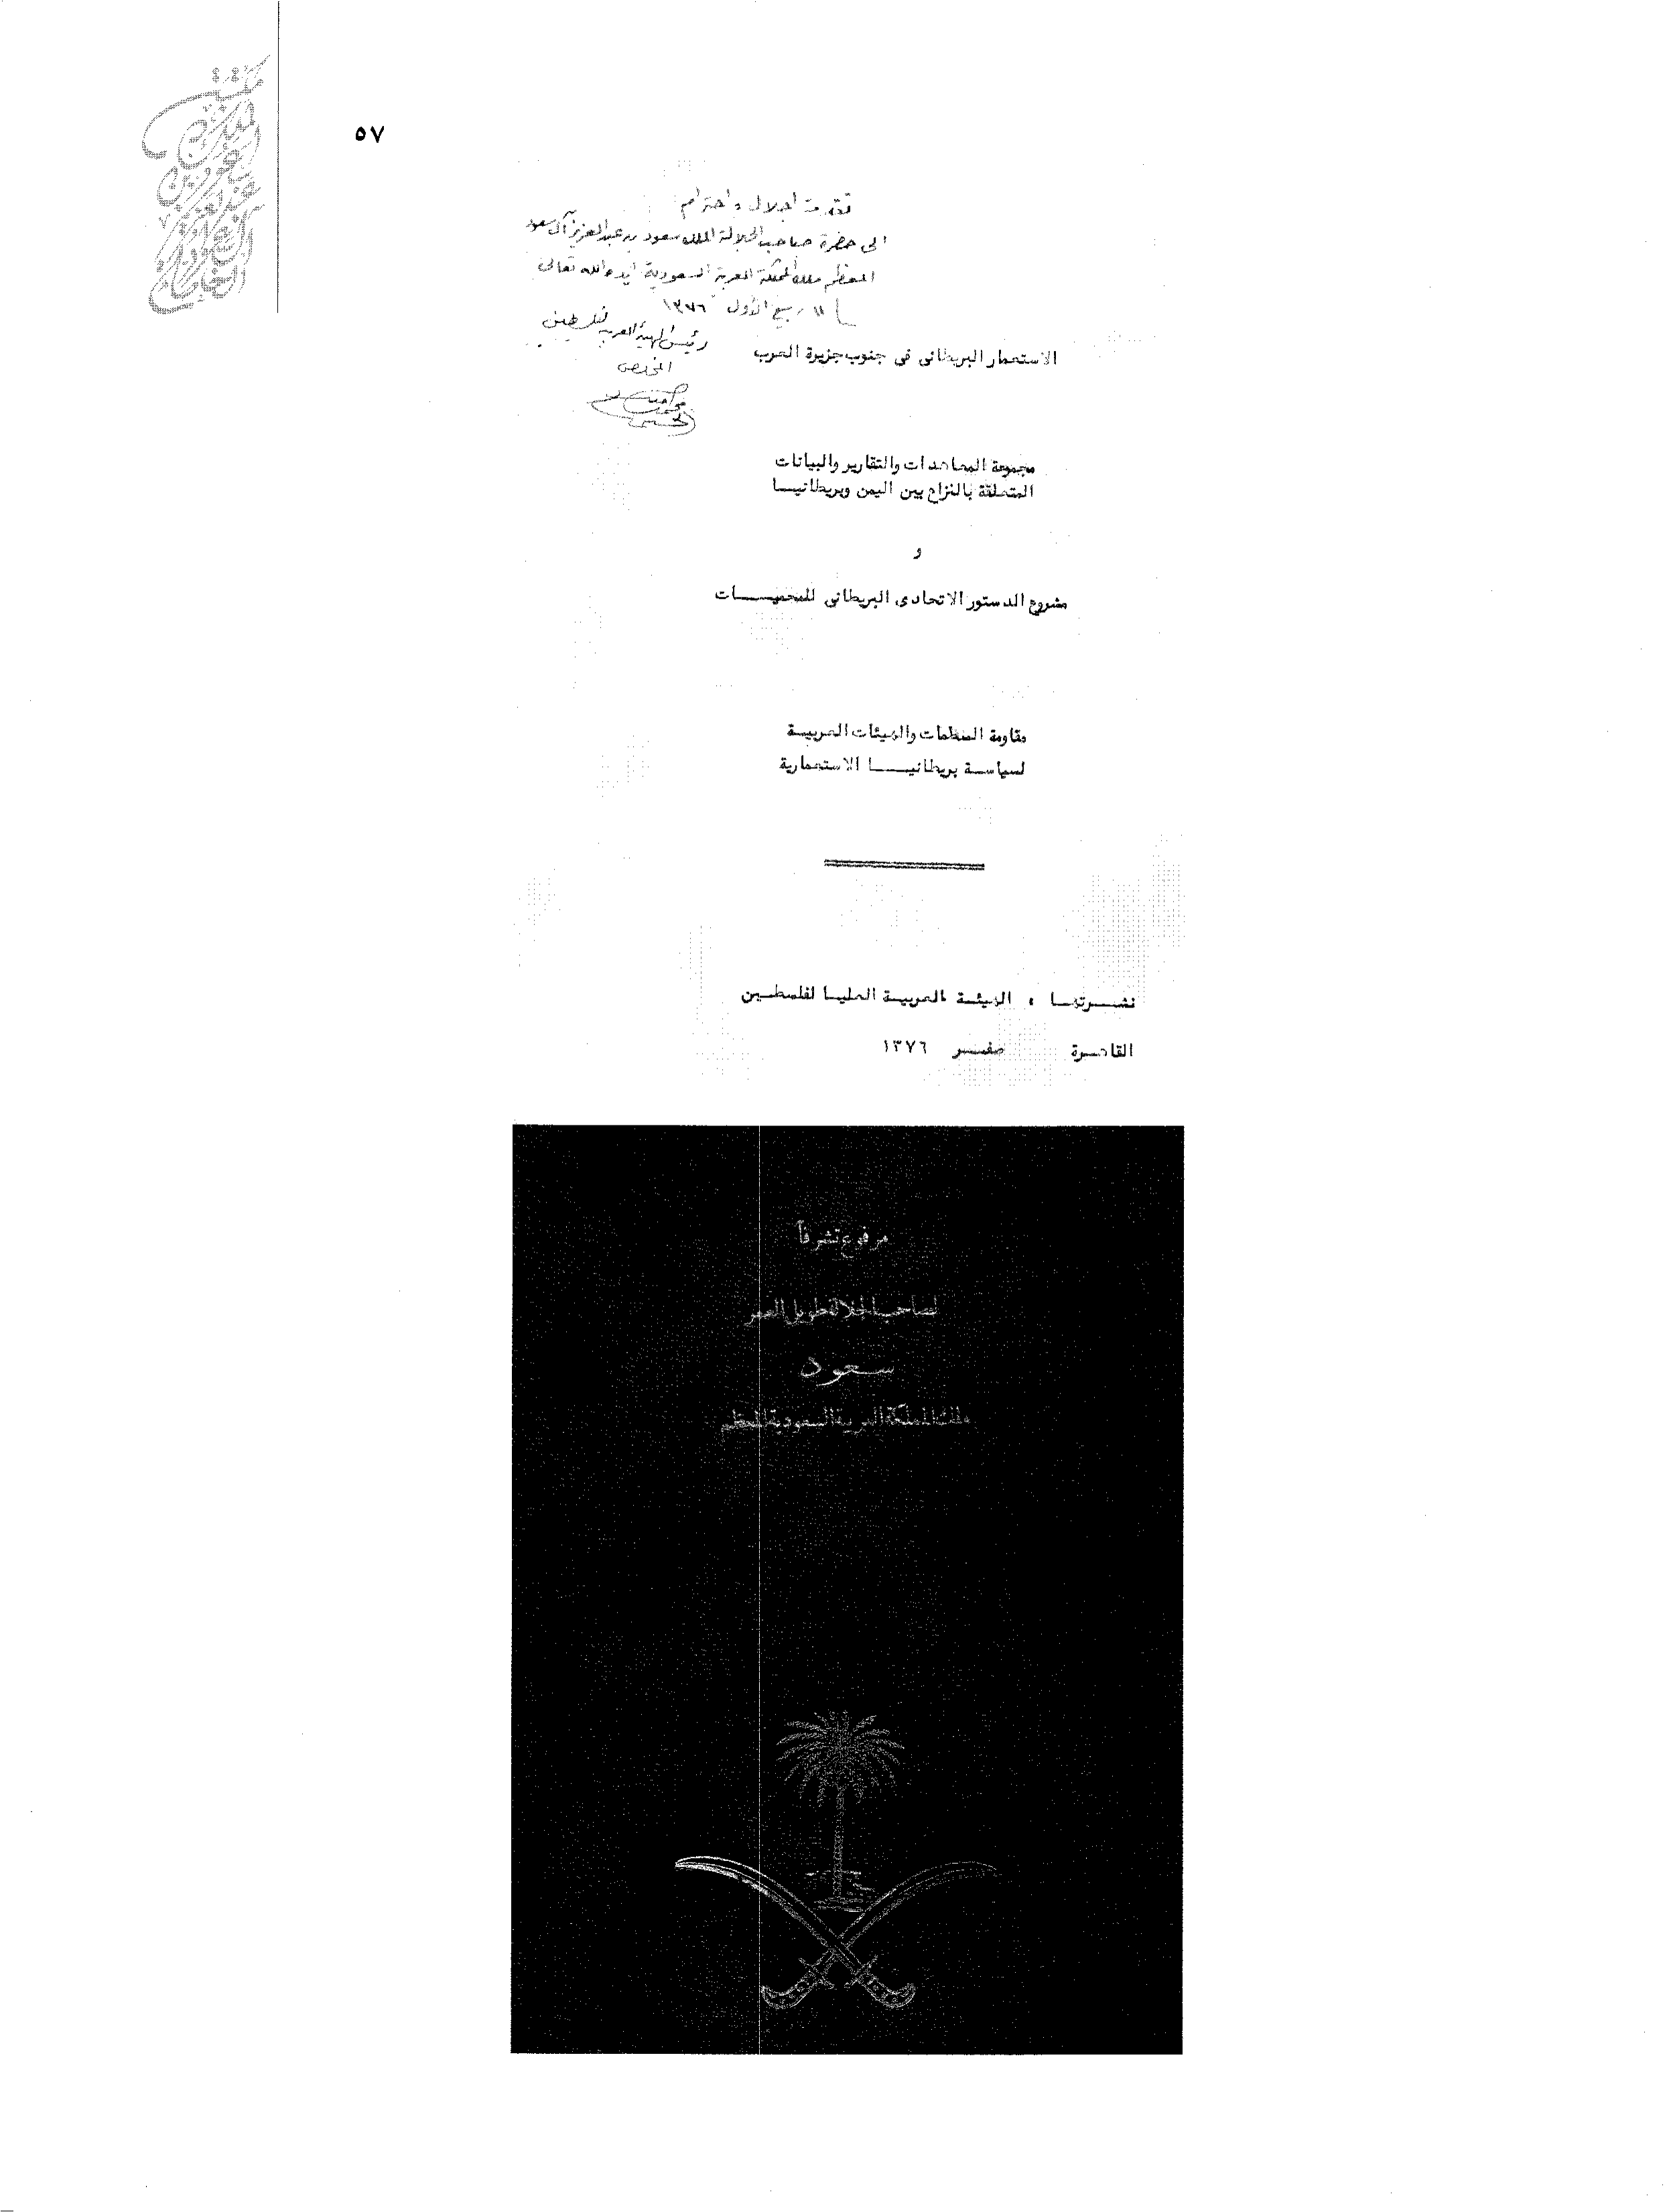 ٥٧
تقدمة اجلال واحترام
الى حضرة صاحب الجلالة الملك سعود بن عبد العزيز آل سعود
المعظم ملك المملكة العربية السعودية ايده الله تعالى
١١ ربيع الأول ١٣٧٦
رئيس الهيئة العربية لفلسطين
المخلص
محمد امين الحسيني
الاستعمار البريطانى فى جنوب جزيرة العرب
مجموعة المعاهدات والتقارير والبيانات
المتعلقة بالنزاع بين اليمن وبريطانيـــا
و
مشروع الدستور الاتحادى البريطانى للمحميـــــات
مقاومة المنظمات والهيئات العربيـة
لسياسـة بريطانيـــا الاستعمارية
نشـــرتهـا : الهيئـة العربيـة العليـا لفلسطـين
القاهـرة صفـــر ١٣٧٦
مرفوع تشرفاً
لصاحب الجلالة طويل العمر
سعود
ملك المملكة العربية السعودية المعظم